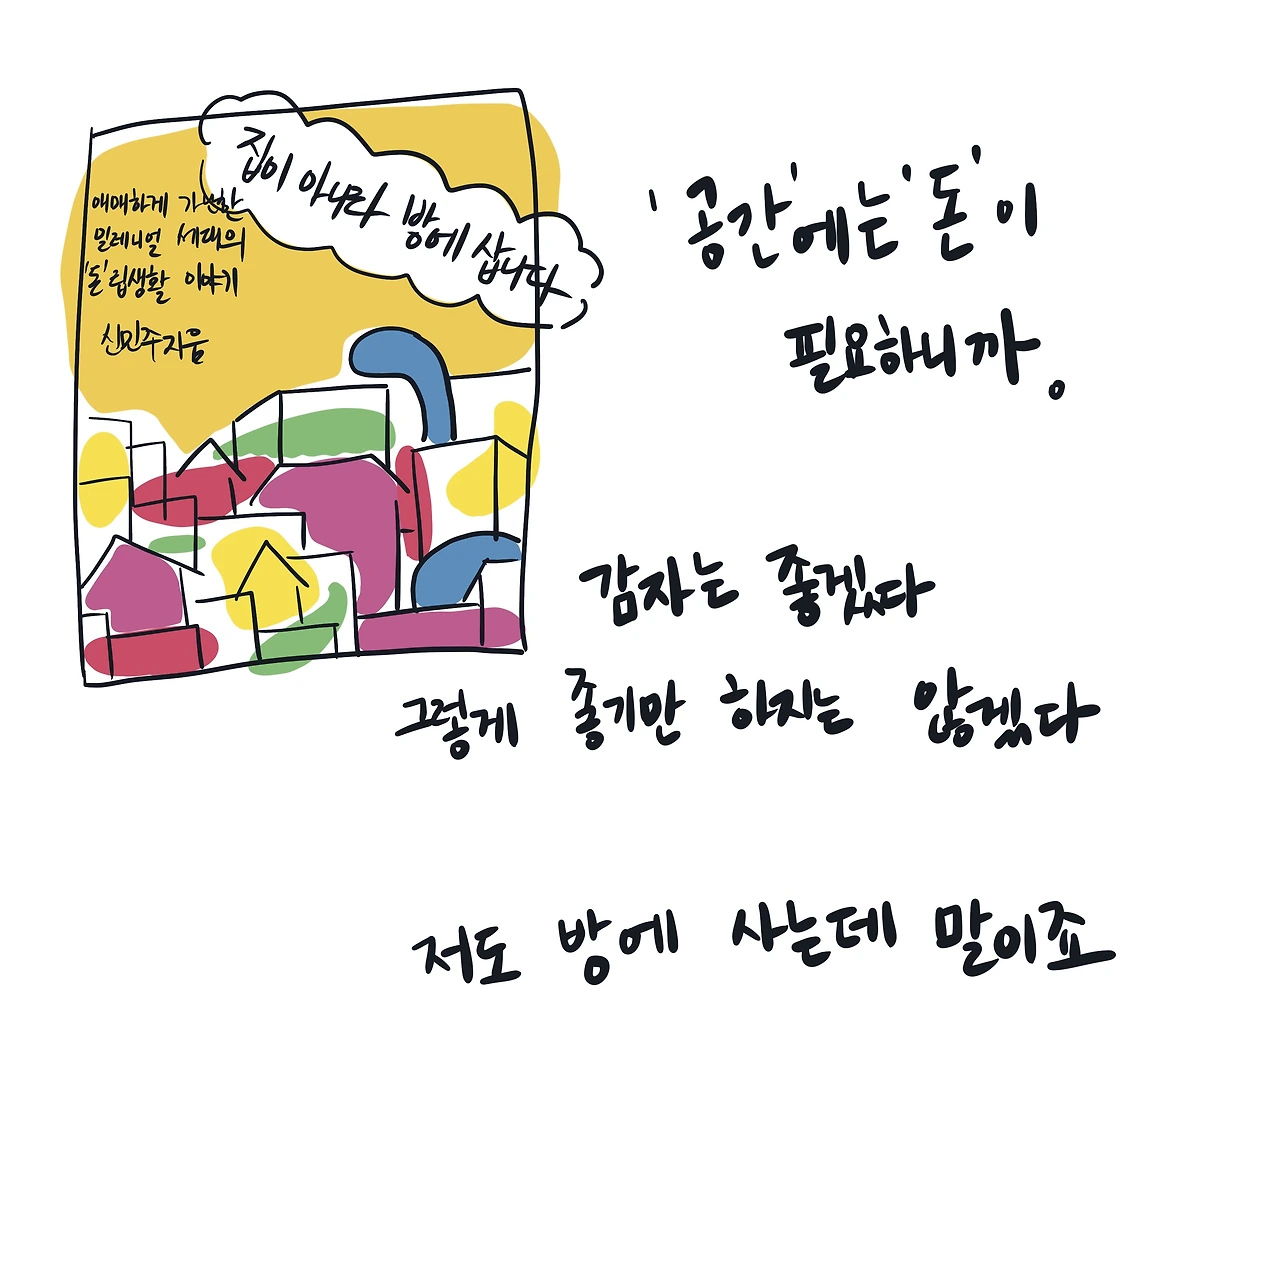 집이 아니라 방에 삽니다
애매하게 가난한
밀레니얼 세대의
'돈'립생활 이야기
신민주 지음
'공간'에는 '돈'이
필요하니까。
감자는 좋겠다
그렇게 좋기만 하지는 않겠다
저도 방에 사는데 말이죠